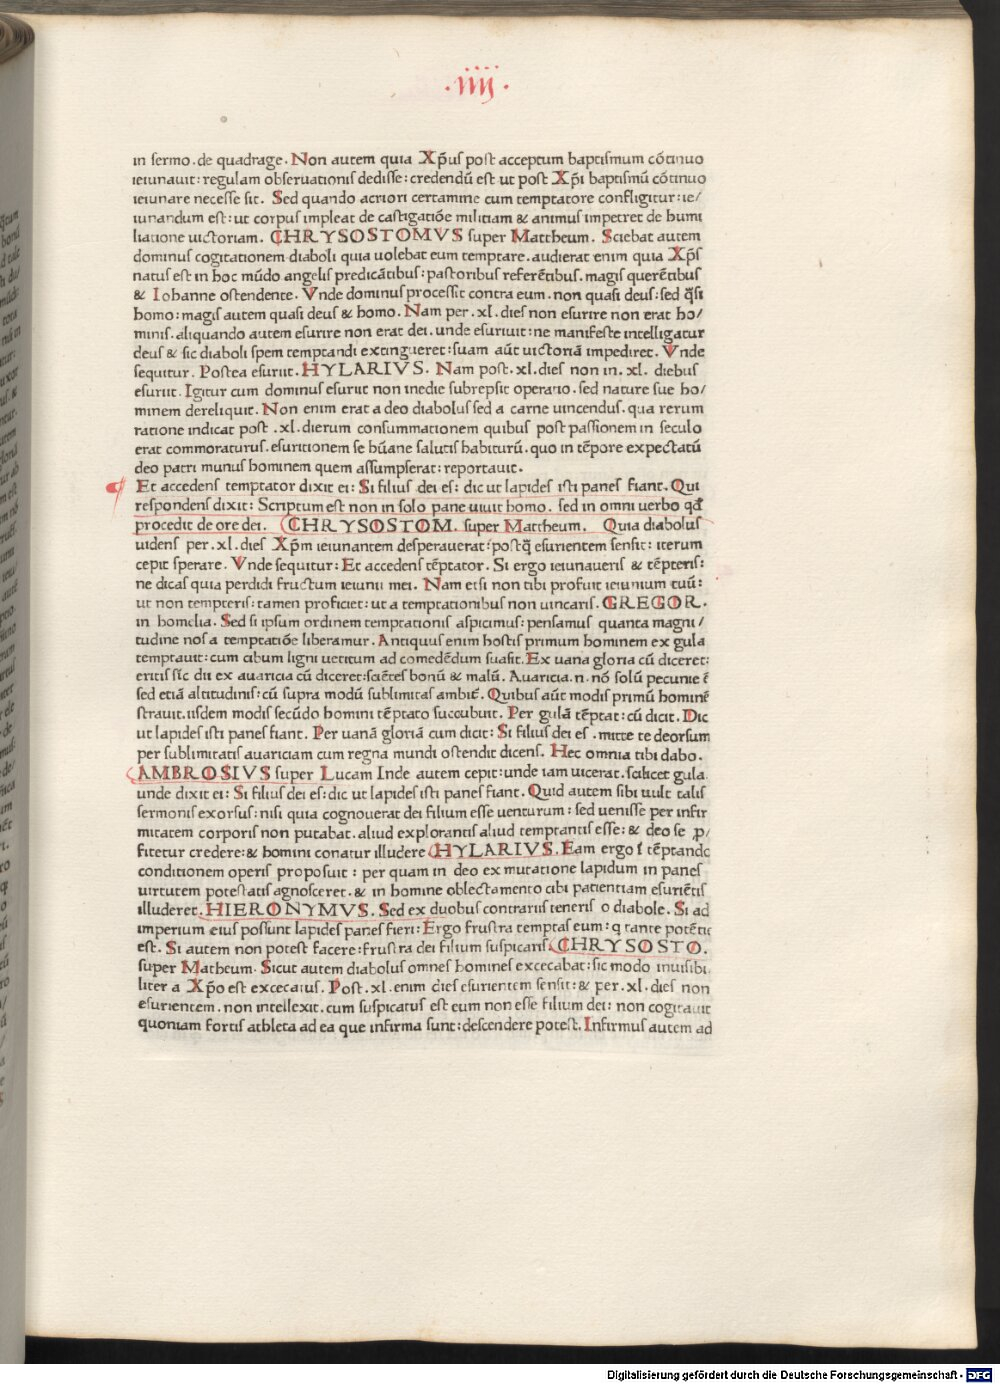 .iiij.
in sermo. de quadrage. Non autem quia Xp̄us post acceptum baptismum cōtinuo
ieiunauit: regulam obseruationis dedisse: credendū est ut post Xp̄i baptismū cōtinuo
ieiunare necesse sit. Sed quando acriori certamine cum temptatore confligitur: ie/
iunandum est: ut corpus impleat de castigatiōe militiam & animus impetret de humi
liatione uictoriam. CHRYSOSTOMVS super Mattheum. Sciebat autem
dominus cogitationem diaboli quia uolebat eum temptare. audierat enim quia Xp̄s
natus est in hoc mūdo angelis predicātibus: pastoribus referētibus. magis querētibus
& Iohanne ostendente. Vnde dominus processit contra eum. non quasi deus: sed q̄si
homo: magis autem quasi deus & homo. Nam per .xl. dies non esurire non erat ho/
minis. aliquando autem esurire non erat dei. unde esuriuit: ne manifeste intelligatur
deus & sic diaboli spem temptandi extingueret: suam aūt uictoriā impediret. Vnde
sequitur. Postea esuriit. HYLARIVS. Nam post .xl. dies non in .xl. diebus
esuriit. Igitur cum dominus esuriit non inedie subrepsit operatio. sed nature sue ho/
minem dereliquit. Non enim erat a deo diabolus sed a carne uincendus. qua rerum
ratione indicat post .xl. dierum consummationem quibus post passionem in seculo
erat commoraturus. esuritionem se hūane salutis habiturū. quo in tēpore expectatū
deo patri munus hominem quem assumpserat: reportauit.
Et accedens temptator dixit ei: Si filius dei es: dic ut lapides isti panes fiant. Qui
respondens dixit: Scriptum est non in solo pane uiuit homo. sed in omni uerbo qd̄
procedit de ore dei. CHRYSOSTOM. super Mattheum. Quia diabolus
uidens per .xl. dies Xp̄m ieiunantem desperauerat: postq̄ esurientem sensit: iterum
cepit sperare. Vnde sequitur: Et accedens tēptator. Si ergo ieiunaueris & tēpteris:
ne dicas quia perdidi fructum ieiunii mei. Nam etsi non tibi profuit ieiunium tuū:
ut non tempteris: tamen proficiet: ut a temptationibus non uincaris. GREGOR.
in homelia. Sed si ipsum ordinem temptationis aspicimus: pensamus quanta magni/
tudine nos a temptatiōe liberamur. Antiquus enim hostis primum hominem ex gula
temptauit: cum cibum ligni uetitum ad comedēdum suasit. Ex uana gloria cū diceret:
eritis sic̄ dii ex auaricia cū diceret: sciētes bonū & malū. Auaricia .n. nō solū pecunie ē
sed etiā altitudinis: cū supra modū sublimitas ambit̄. Quibus aūt modis primū hominē
strauit. iisdem modis secūdo homini tēptato succubuit. Per gulā tēptat: cū dicit. Dic
ut lapides isti panes fiant. Per uanā gloriā cum dicit: Si filius dei es . mitte te deorsum
per sublimitatis auariciam cum regna mundi ostendit dicens. Hec omnia tibi dabo.
AMBROSIVS super Lucam Inde autem cepit: unde iam uicerat. scilicet gula.
unde dixit ei: Si filius dei es: dic ut lapides isti panes fiant. Quid autem sibi uult talis
sermonis exorsus: nisi quia cognouerat dei filium esse uenturum: sed uenisse per infir
mitatem corporis non putabat. aliud explorantis aliud temptantis esse: & deo se ꝓ/
fitetur credere: & homini conatur illudere HYLARIVS. Eam ergo ī tēptando
conditionem operis proposuit: per quam in deo ex mutatione lapidum in panes
uirtutem potestatis agnosceret. & in homine oblectamento cibi patientiam esuriētis
illuderet. HIERONYMVS. Sed ex duobus contrariis teneris o diabole. Si ad
imperium eius possunt lapides panes fieri: Ergo frustra temptas eum: q tante potētie
est. Si autem non potest facere: frustra dei filium suspicaris. CHRYSOSTO.
super Matheum. Sicut autem diabolus omnes homines excecabat: sic modo inuisibi
liter a Xp̄o est excecatus. Post .xl. enim dies esurientem sensit: & per .xl. dies non
esurientem. non intellexit. cum suspicatus est eum non esse filium dei: non cogitauit
quoniam fortis athleta ad ea que infirma sunt: descendere potest. Infirmus autem ad
Digitalisierung gefördert durch die Deutsche Forschungsgemeinschaft - DFG